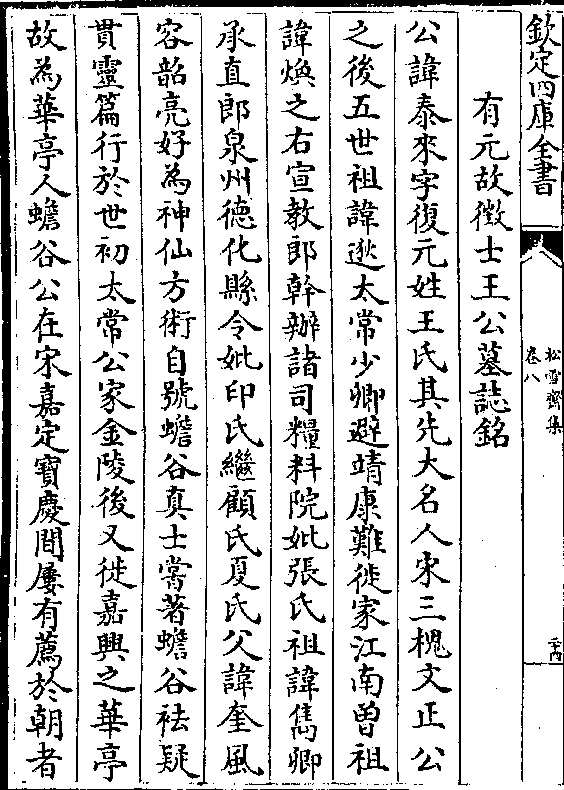 欽定四庫全書
松雪齋集
卷八
二十四
有元故徵士王公墓誌銘
公諱泰來字復元姓王氏其先大名人宋三槐文正公
之後五世祖諱逖太常少卿避靖康難徙家江南曽祖
諱煥之右宣教郎幹辦諸司糧料院妣張氏祖諱雋卿
承直郎泉州德化縣令妣印氏繼顧氏夏氏父諱奎風
容韶亮好為神仙方術自號蟾谷真士嘗著蟾谷祛疑
貫靈篇行於世初太常公家金陵後又徙嘉興之華亭
故為華亭人蟾谷公在宋嘉定寳慶間屢有薦於朝者